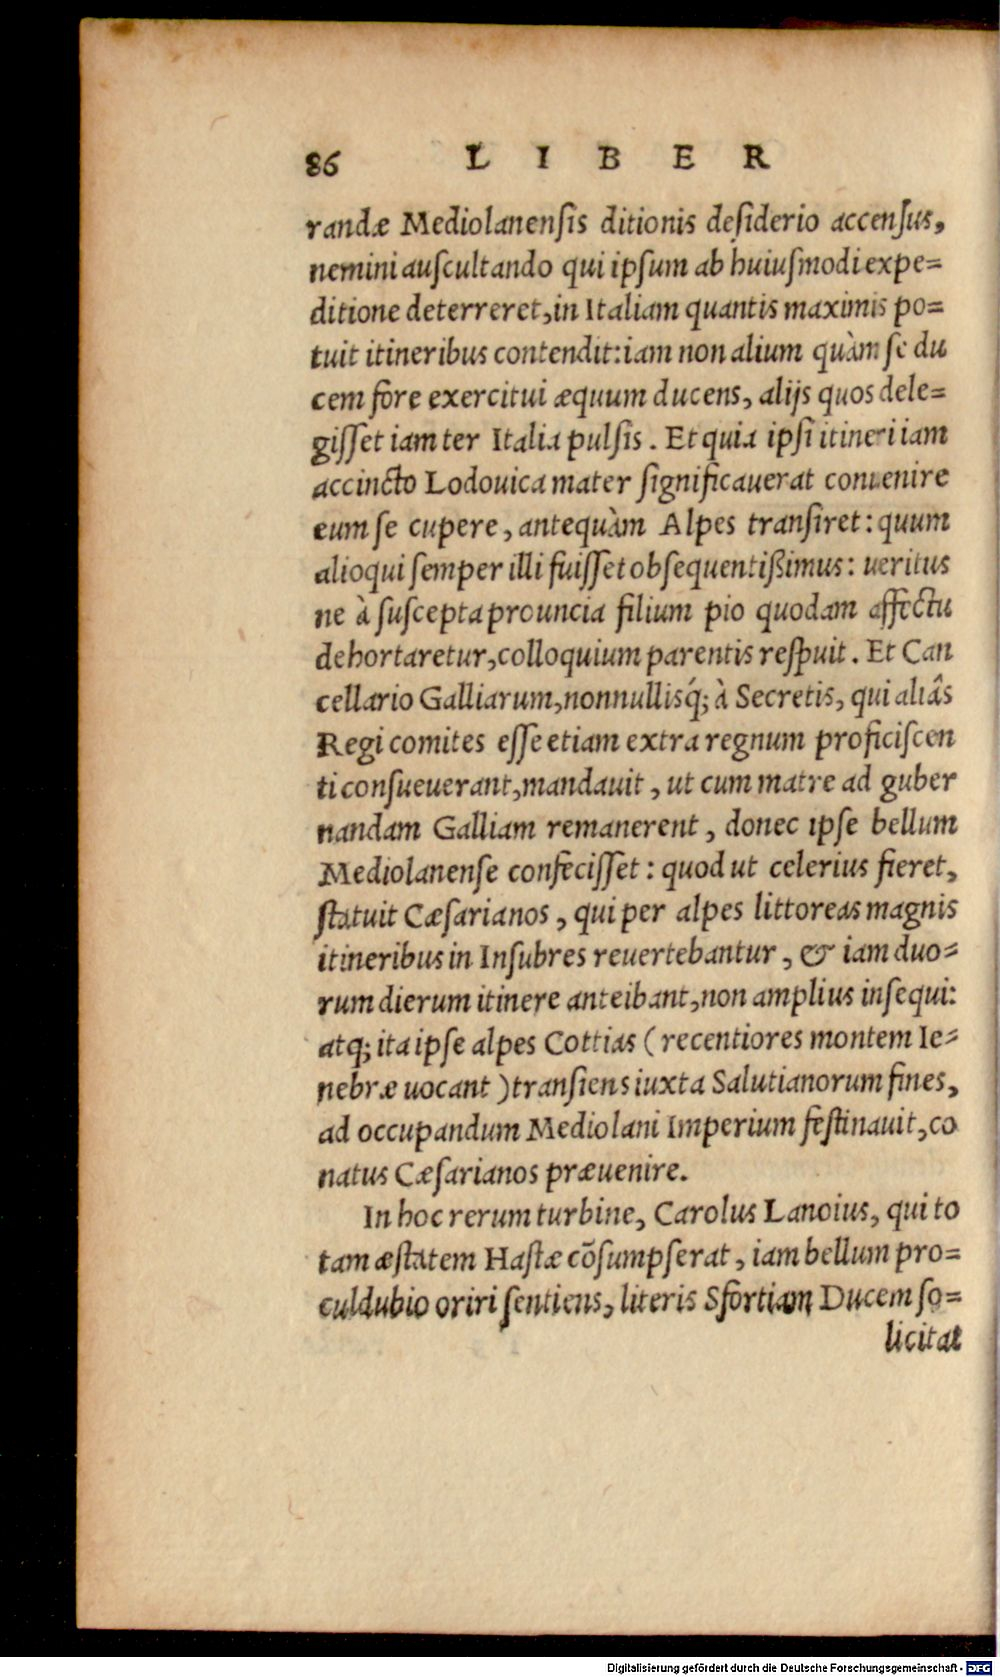 86 LIBER
randæ Mediolanensis ditionis desiderio accensus,
nemini auscultando qui ipsum ab huiusmodi expe=
ditione deterreret, in Italiam quantis maximis po=
tuit itineribus contendit: iam non alium quàm se du
cem fore exercitui æquum ducens, alijs quos dele=
gisset iam ter Italia pulsis. Et quia ipsi itineri iam
accincto Lodouica mater significauerat conuenire
eum se cupere, antequàm Alpes transiret: quum
alioqui semper illi fuisset obsequentißimus: ueritus
ne à suscepta prouncia filium pio quodam affectu
dehortaretur, colloquium parentis respuit. Et Can
cellario Galliarum, nonnullisq́; à Secretis, qui aliâs
Regi comites esse etiam extra regnum proficiscen
ti consueuerant, mandauit, ut cum matre ad guber
nandam Galliam remanerent, donec ipse bellum
Mediolanense confecisset: quod ut celerius fieret,
statuit Cæsarianos, qui per alpes littoreas magnis
itineribus in Insubres reuertebantur, & iam duo=
rum dierum itinere anteibant, non amplius insequi:
atq; ita ipse alpes Cottias (recentiores montem Ie=
nebræ uocant) transiens iuxta Salutianorum fines,
ad occupandum Mediolani Imperium festinauit, co
natus Cæsarianos præuenire.
In hoc rerum turbine, Carolus Lanoius, qui to
tam æstatem Hastæ cõsumpserat, iam bellum pro=
culdubio oriri sentiens, literis Sfortiam Ducem so=
licitat
Digitalisierung gefördert durch die Deutsche Forschungsgemeinschaft - DFG